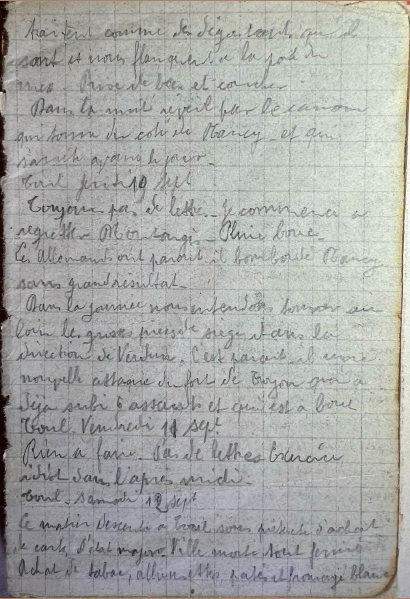 traitent comme des dégoutants qu'ils
sont et nous flanquent à la
Prise de bec et coucher
Dans la nuit réveil par le canon
qui tonne du coté de Nancy et qui
avant le jour -
Toul jeudi 10 Sept
Toujours pas de lettre - Je commence à
regretter - Pluie boue -
Les Allemands ont paraît-il bombardé Nancy
sans grand résultat -
Dans la journée nous entendons tonner au
loin les grosses pièces de siège dans la
direction de Verdun. C'est paraît-il encore
nouvelle attaque du fort de Troyon qui a
déjà subi 6 assauts et qui est à bout
Toul. Vendredi 11 sept
Rien à faire. Pas de lettres Exercice
idiot dans l'après midi.
Toul. Samedi 12 sept
Ce matin Descente à Toul sous prétexte d'achat
de carte d'état major. Ville morte tout fermé
Achat de tabac, allumettes, patés et fromage blanc